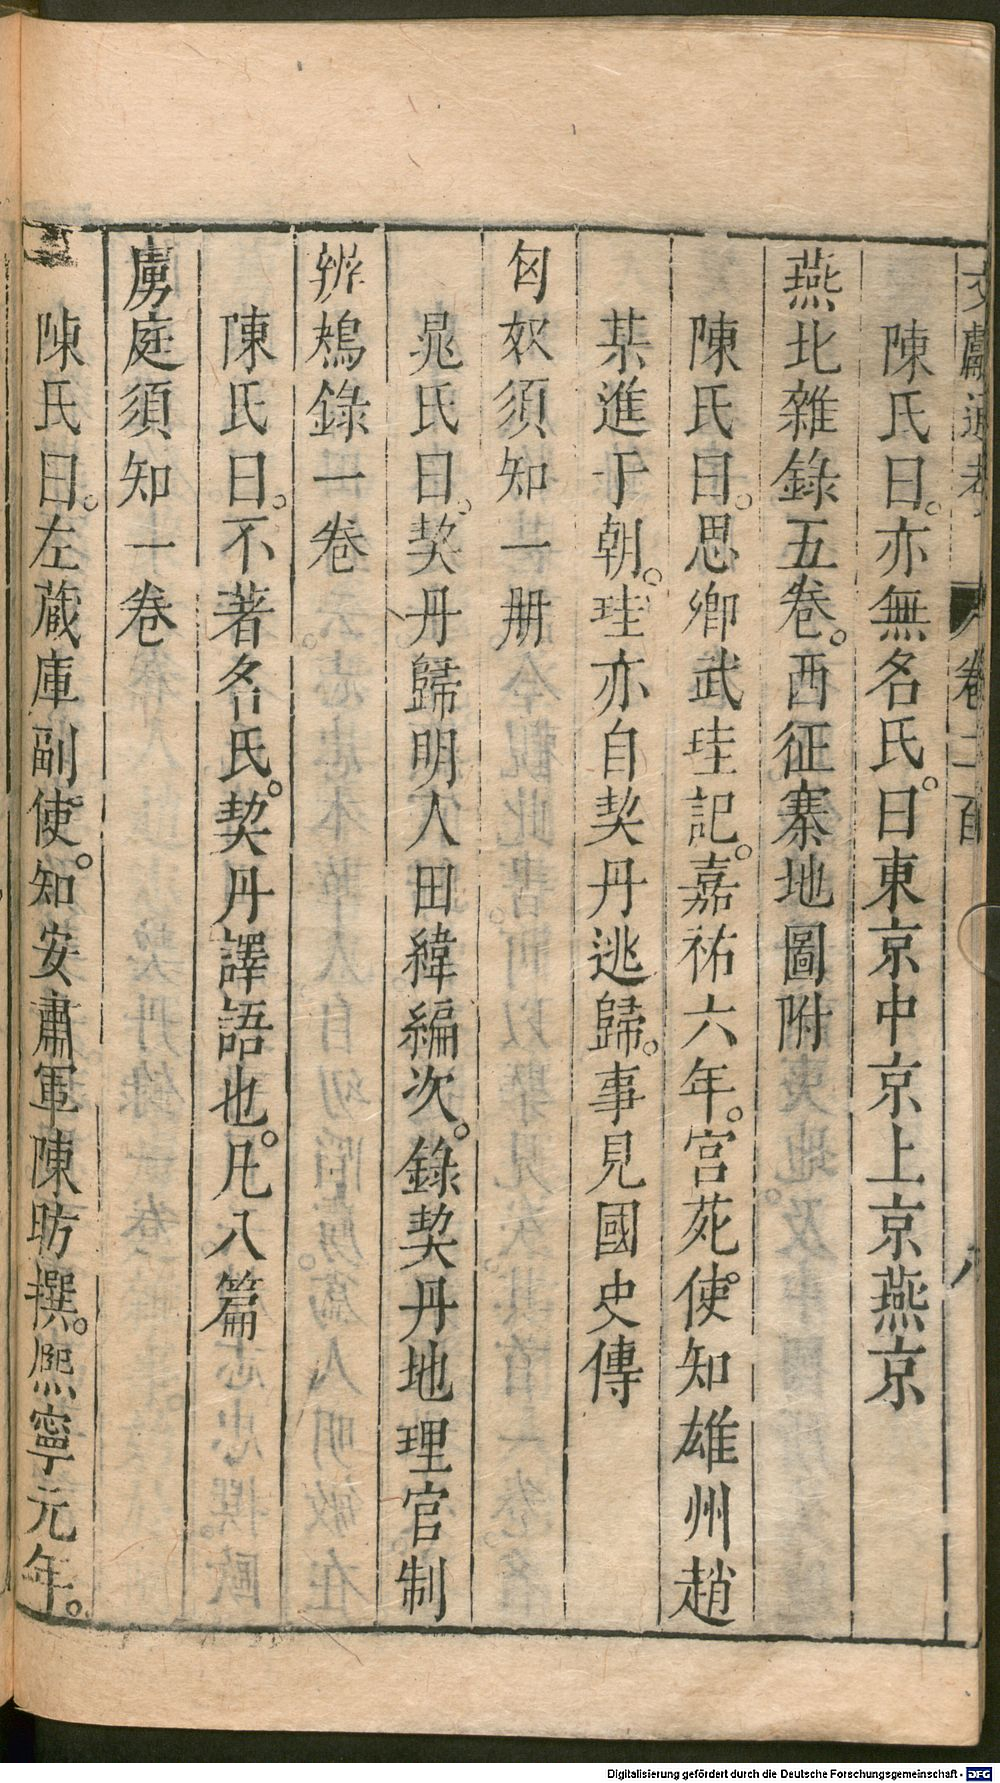 文獻通考 卷二百 八
陳氏曰。亦無名氏。曰東京中京上京燕京
燕北雜錄五卷。西征寨地圖附
陳氏曰。思卿武珪記。嘉祐六年。宮苑使知雄州趙
某進于朝。珪亦自契丹逃歸。事見國史傳
匈奴須知一册
晁氏曰。契丹歸明人田緯編次。錄契丹地理官制
辨鴂錄一卷
陳氏曰。不著名氏。契丹譯語也。凡八篇
虜庭須知一卷
陳氏曰。左藏庫副使。知安肅軍陳昉撰。熈寧元年。
Digitalisierung gefördert durch die Deutsche Forschungsgemeinschaft - DFG